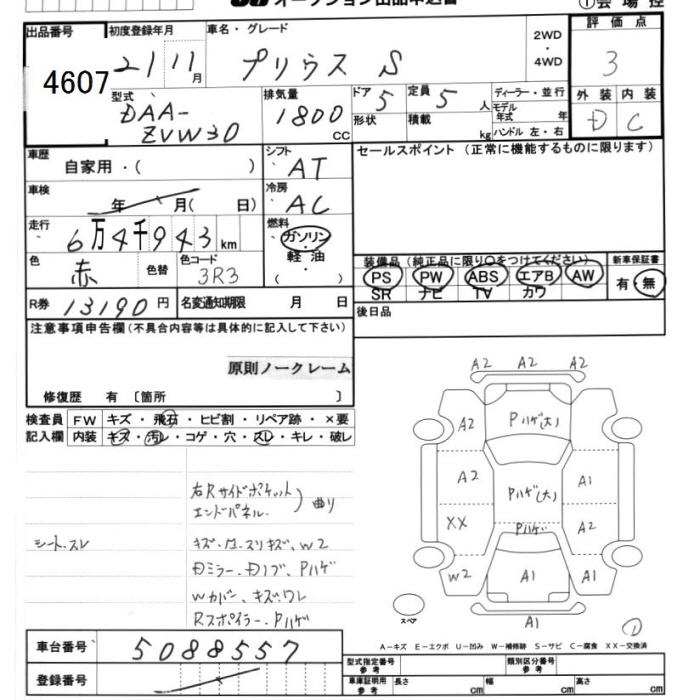 オークション出品申込書
①会場控
出品番号
4607
初度登録年月
21 11月
車名・グレード
プリウス S
2WD
・
4WD
評価点
3
外装 内装
D C
型式
DAA-
ZVW30
排気量
1800
CC
ドア 5
定員 5 人
形状
積載 kg
ディーラー・並行
モデル年式 年
ハンドル 左・右
車歴
自家用・( )
シフト
AT
セールスポイント (正常に機能するものに限ります)
車検
年 月( 日)
冷房
AC
走行
6万4千943km
燃料
ガソリン
・
軽油
( )
色
赤
色替
色コード
3R3
装備品(純正品に限り○をつけてください)
PS PW ABS エアB AW
SR ナビ TV カワ
新車保証書
有・無
R券 13190円
名変通知期限 月 日
後日品
注意事項申告欄(不具合内容等は具体的に記入して下さい)
原則ノークレーム
修復歴 有 〔箇所 〕
検査員
記入欄
FW キズ・飛石・ヒビ割・リペア跡・×要
内装 キズ・汚レ・コゲ・穴・スレ・キレ・破レ
右Rサイドポケット
エンドパネル.
曲り
シートスレ
W2
Dミラー.Dノブ、Pハゲ
Wカバー、キズ、ワレ
Rスポイラー.Pハゲ
A2 A2 A2
A2 Pハゲ(大)
A2 Pハゲ(大) A1
XX Pハゲ A2
W2 A1 A1
A1
スペア
①
A-キズ E-エクボ U-凹み W-補修跡 S-サビ C-腐食 XX-交換済
車台番号 5088557
登録番号
型式指定番号
参考
類別区分番号
参考
車庫証明用
参考
長さ cm
幅 cm
高さ cm